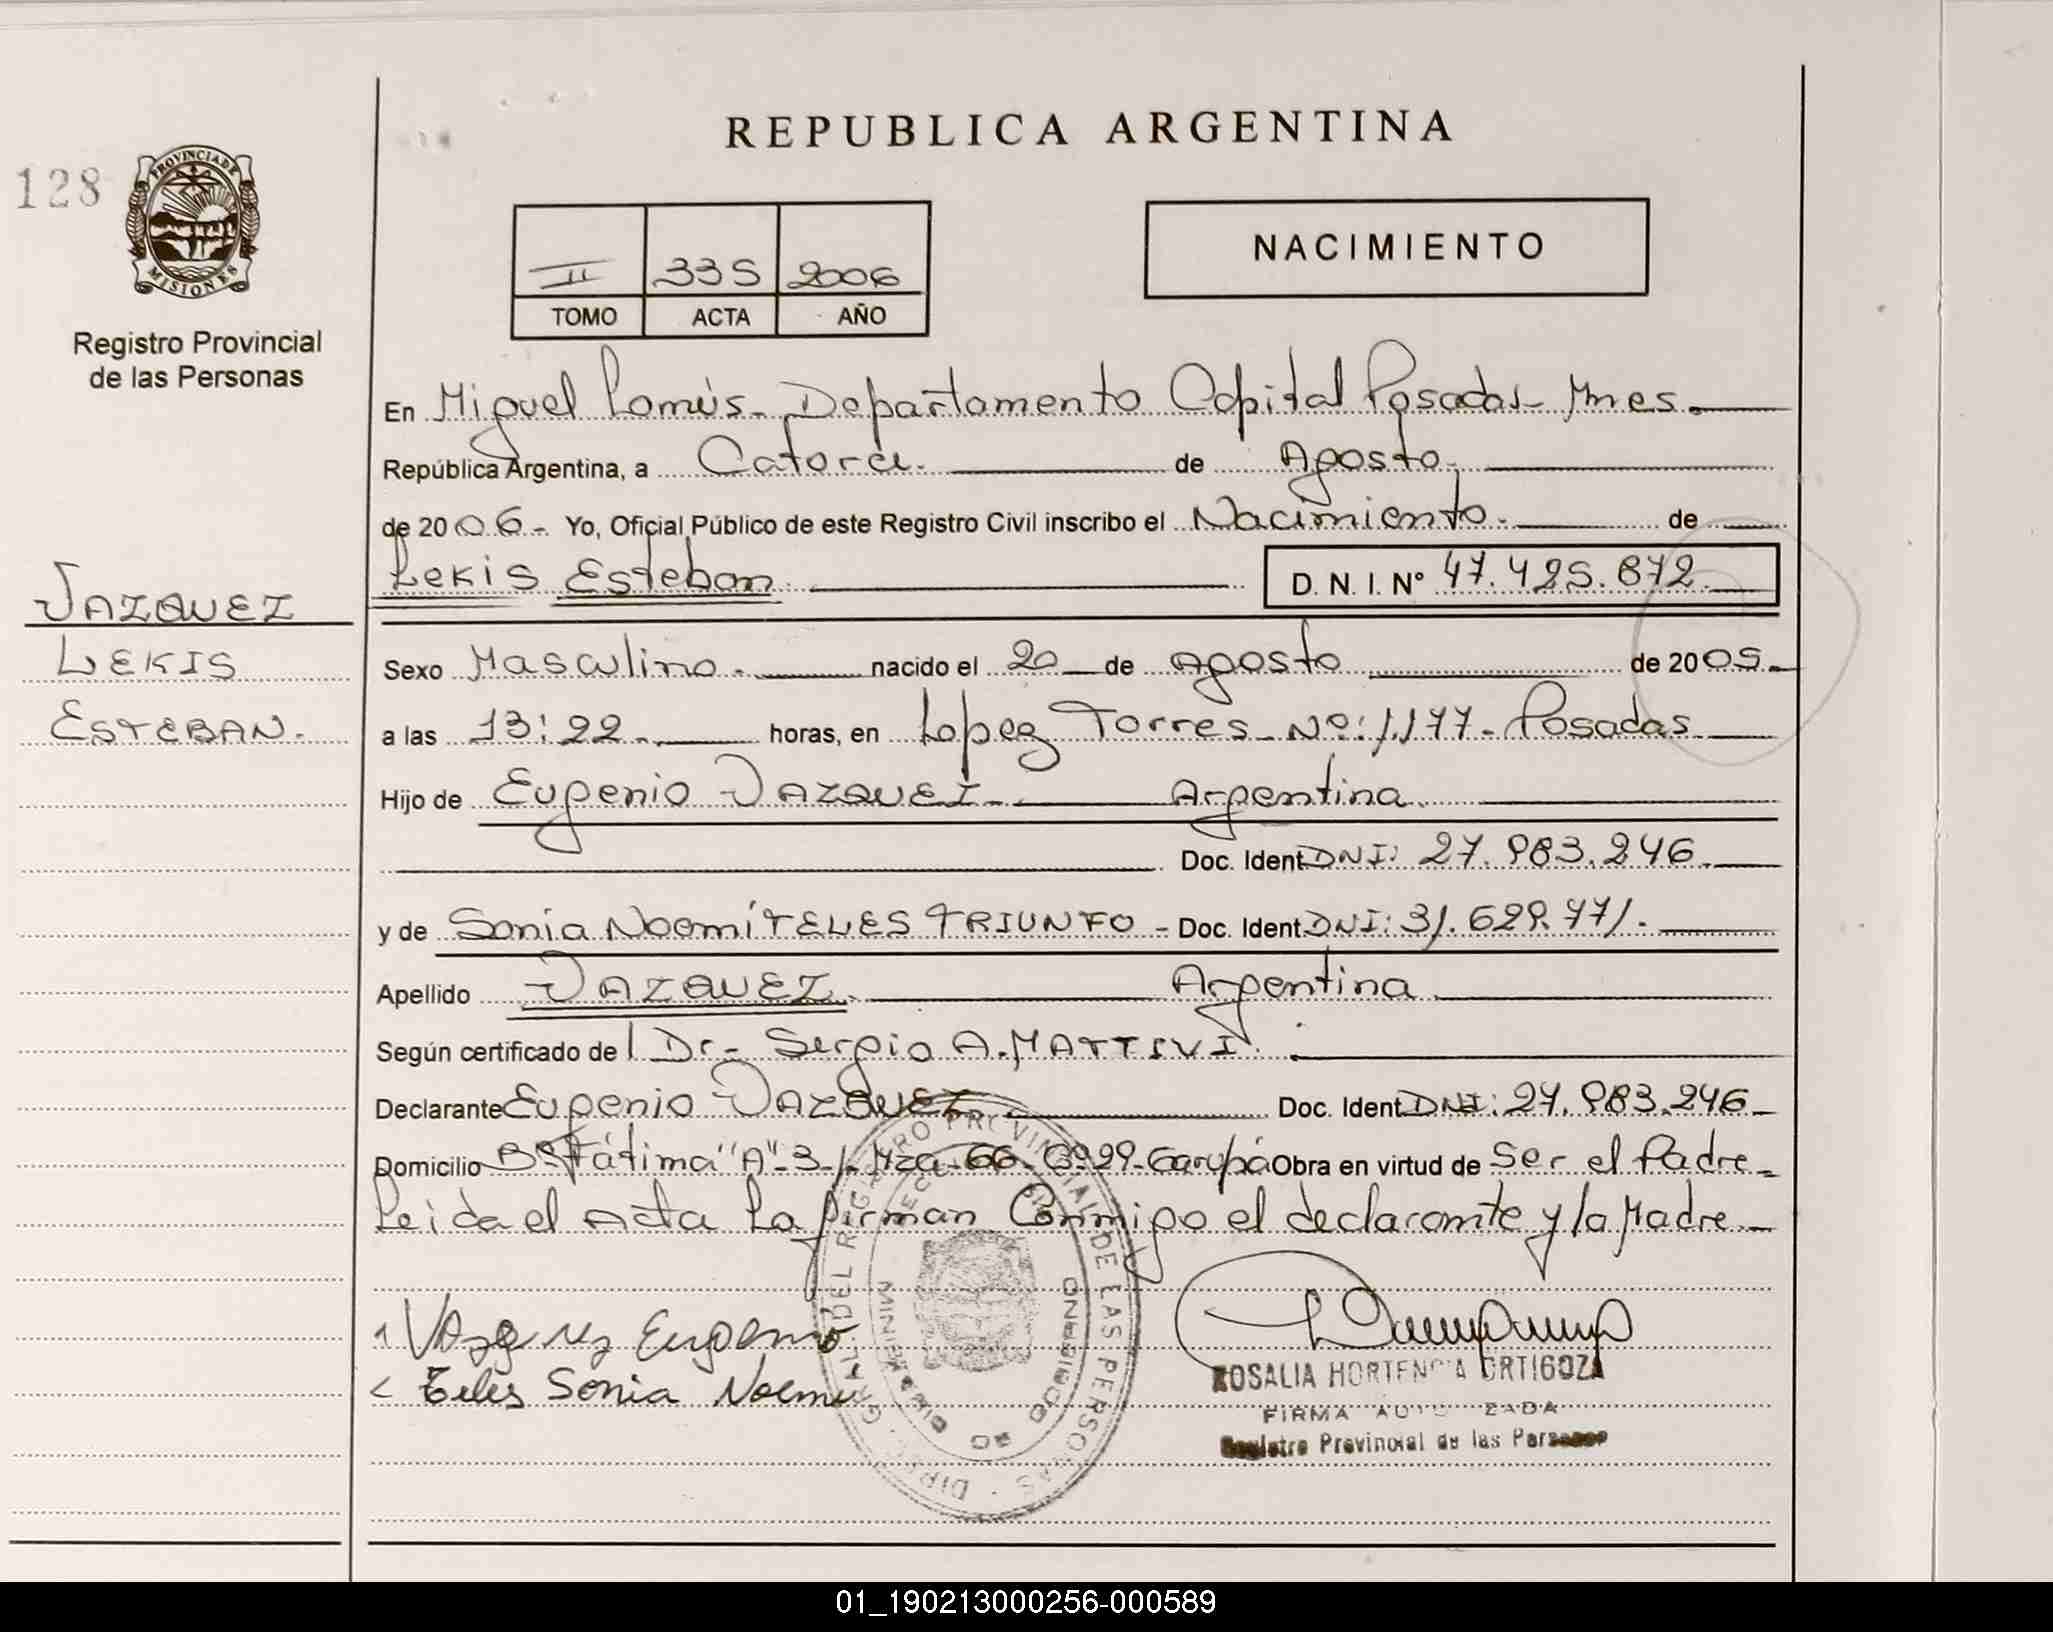 REPUBLICA ARGENTINA
128
PROVINCIA DE
MISIONES
Registro Provincial
de las Personas
II 335 2006
TOMO ACTA AÑO
NACIMIENTO
En Miguel Lanús - Departamento Capital Posadas - Mnes.
República Argentina, a Catorce. de Agosto.
de 2006.- Yo, Oficial Público de este Registro Civil inscribo el Nacimiento. de
Lekis Esteban. D. N. I. Nº 47.425.872.
VAZQUEZ
LEKIS
ESTEBAN.
Sexo Masculino. nacido el 20 de Agosto de 2005.
a las 13:22. horas, en Lopez Torres Nº: 1.177 - Posadas
Hijo de Eugenio VAZQUEZ. Argentina
Doc. Ident. DNI: 27.983.246.
y de Sonia Noemí TELES TRIUNFO - Doc. Ident. DNI: 31.629.771.
Apellido VAZQUEZ. Argentina
Según certificado del Dr. Sergio A. MATTIVI.
Declarante Eugenio VAZQUEZ Doc. Ident. DNI: 27.983.246
Domicilio Bº Fátima "A" - 3 - Mza - 66 - Cº 29 - Garupá Obra en virtud de Ser el Padre
Leida el Acta La firman Conmigo el declarante y la Madre
Vazquez Eugenio
Teles Sonia Noemi
ROSALIA HORTENCIA ORTIGOZA
FIRMA AUTORIZADA
Registro Provincial de las Personas
DIREC. GRAL. DEL REGISTRO PROVINCIAL DE LAS PERSONAS
01_190213000256-000589